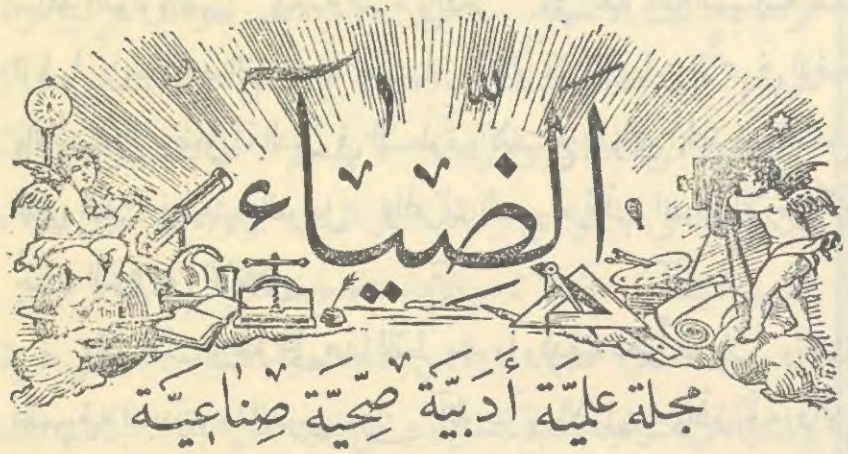 الضِّيَآء
مجلة علميّة أَدَبيّة صِحّيّة صِناعيّة